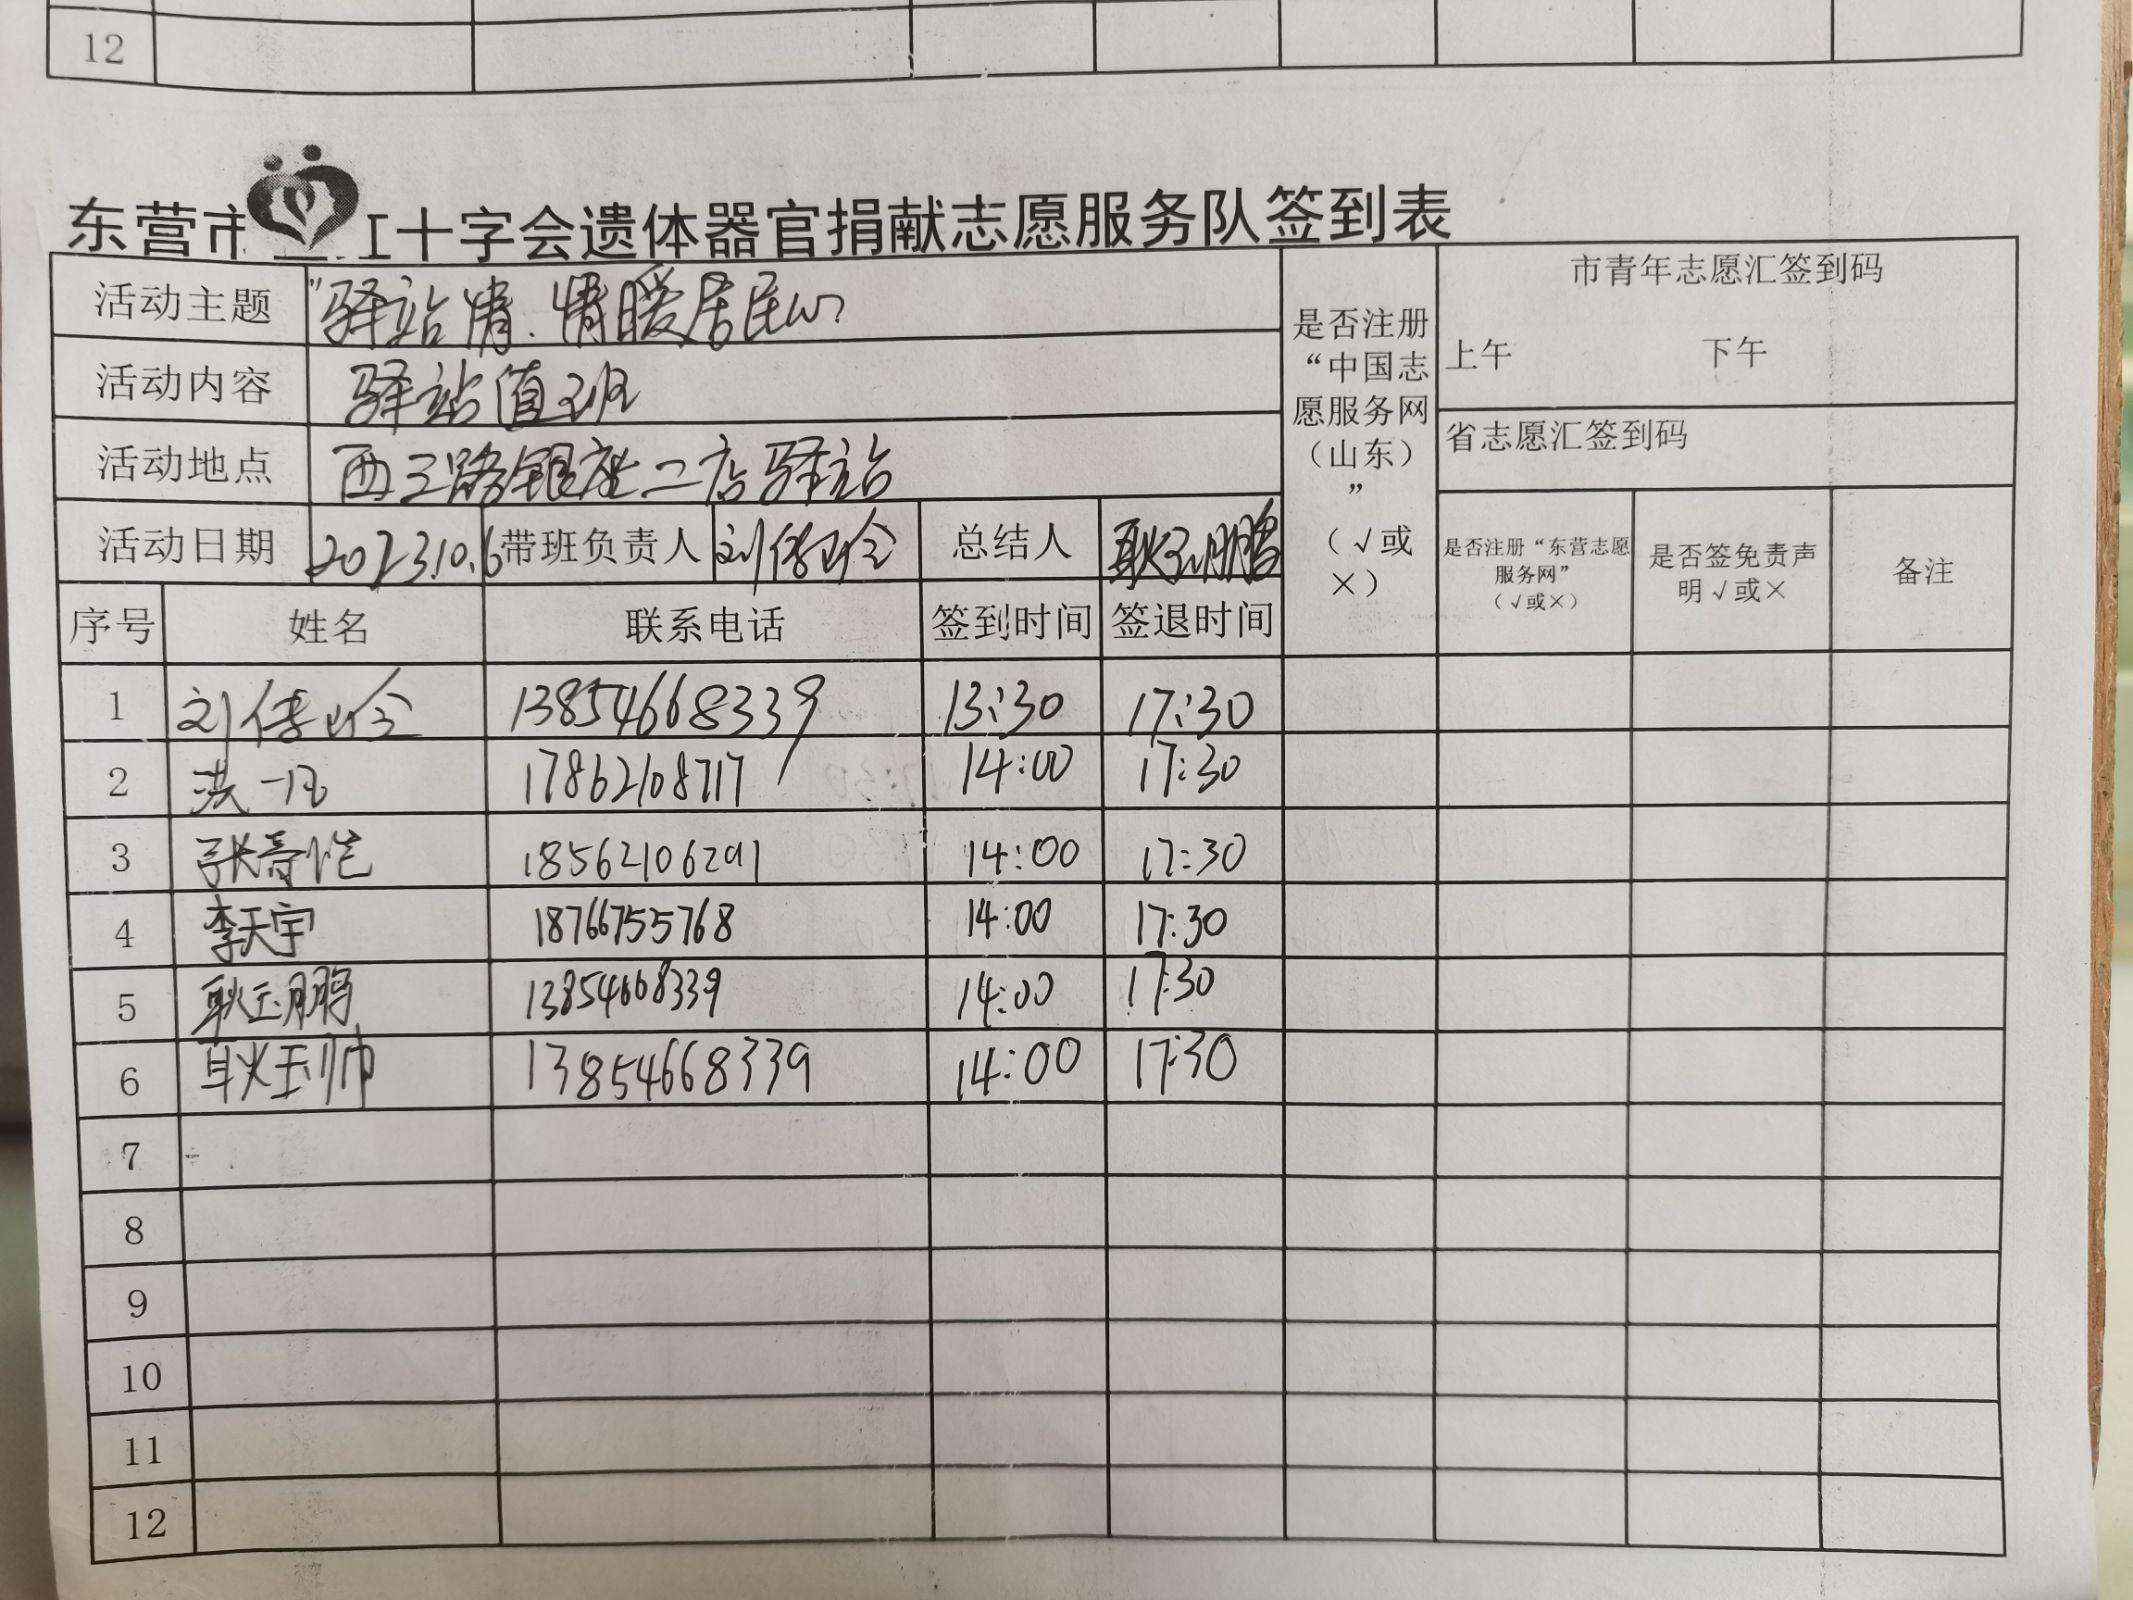 12
东营市红十字会遗体器官捐献志愿服务队签到表
活动主题 "驿站情.情暖居民心"
活动内容 驿站值班
活动地点 西三路银座二店驿站
活动日期 2023.10.6 带班负责人 总结人 耿玉鹏
是否注册“中国志愿服务网（山东）”（√或×）
市青年志愿汇签到码
上午 下午
省志愿汇签到码
是否注册“东营志愿服务网”（√或×） 是否签免责声明√或× 备注
序号 姓名 联系电话 签到时间 签退时间
1 13854668339 13:30 17:30
2 洪一凡 17862108717 14:00 17:30
3 18562106291 14:00 17:30
4 李天宇 18766755768 14:00 17:30
5 耿玉鹏 13854668339 14:00 17:30
6 耿玉帅 13854668339 14:00 17:30
7
8
9
10
11
12